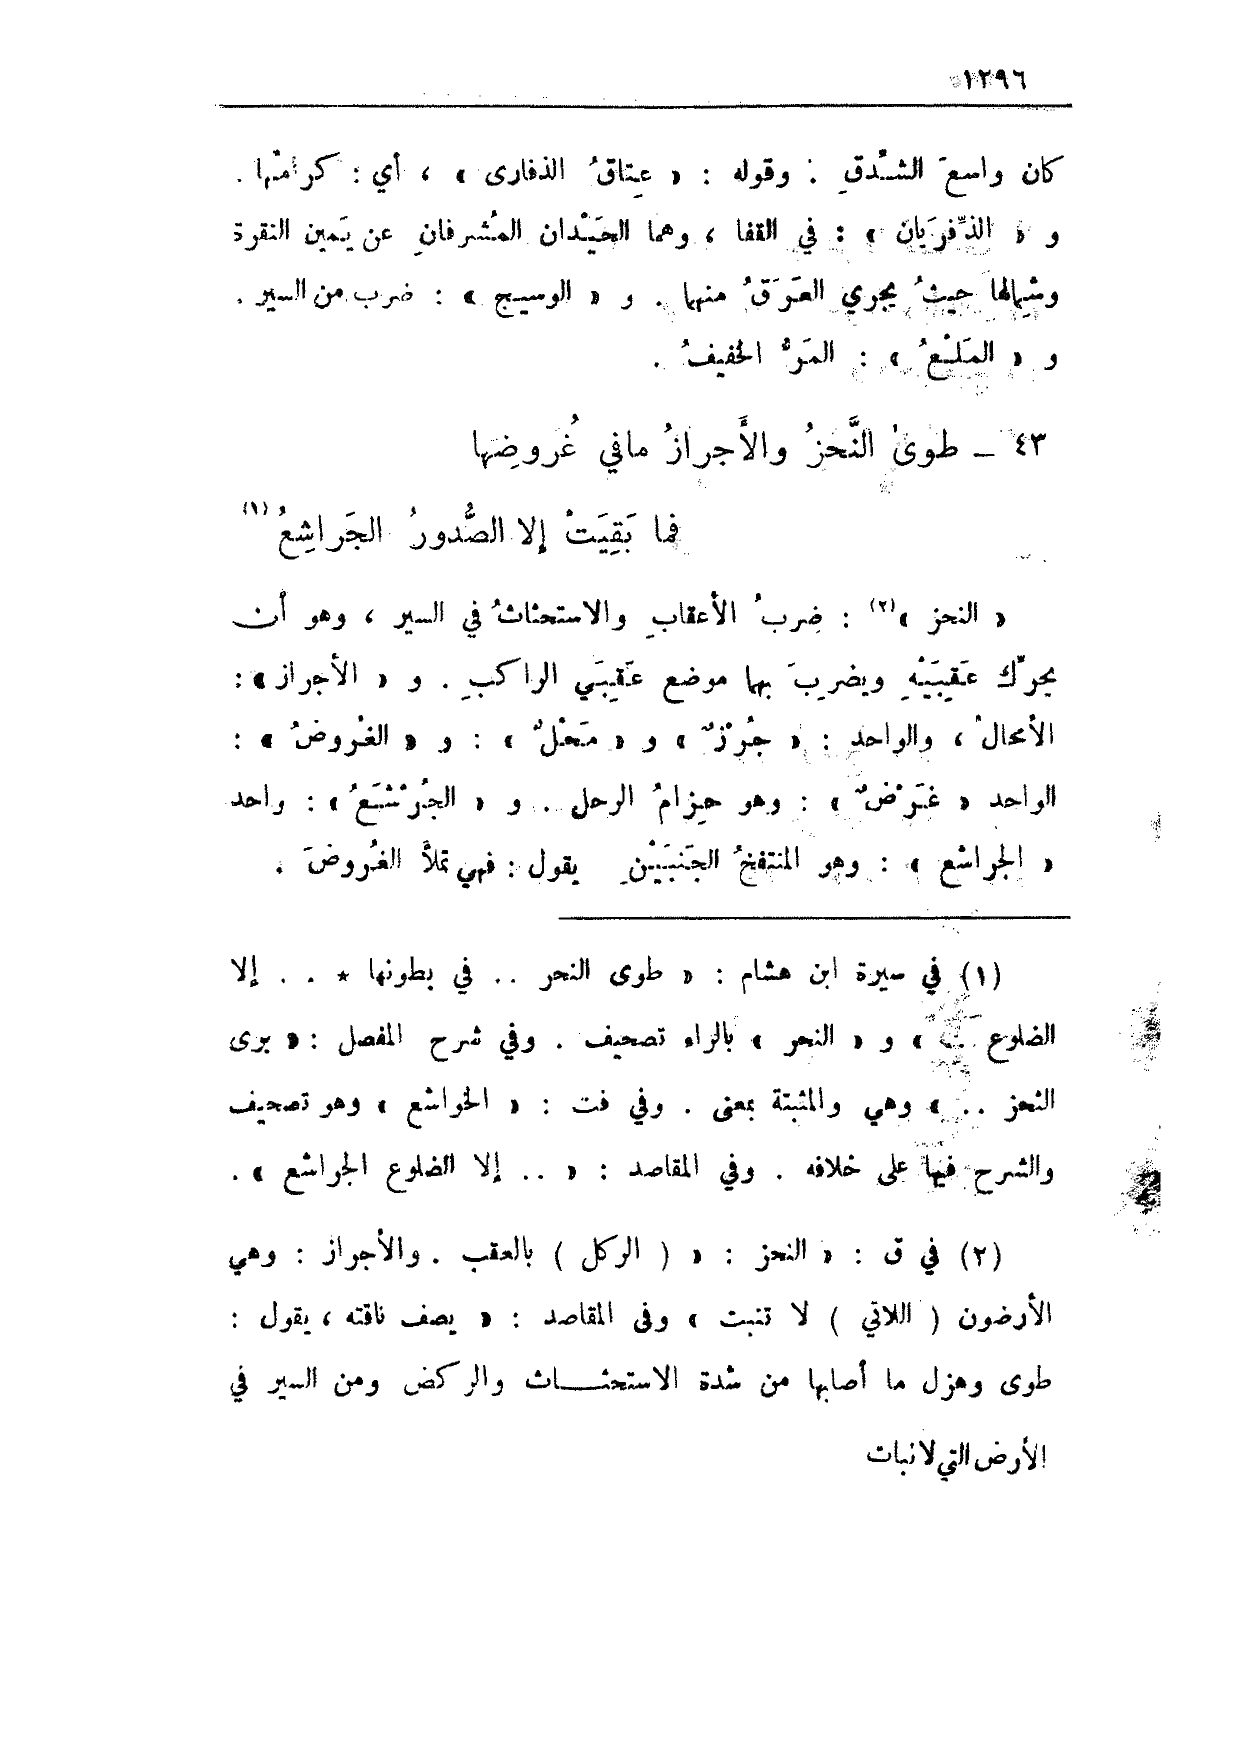 ١٢٩٦
كان واسعَ الشِّدقِ . وقوله : « عِتاقُ الذفارى » ، أي : كرامُها .
و « الذِّفرَيان » : في القفا ، وهما الحَيْدان المُشرفانِ عن يَمين النقرة
وشِمالها حيثُ يجري العَرَقُ منهما . و « الوسيج » : ضرب من السير .
و « المَلْعُ » : المَرُّ الخفيفُ .
٤٣ ــ طوىٰ النَّحزُ والأَجرازُ مافي غُروضِها
فما بَقِيَتْ إلا الصُّدورُ الجَراشِعُ (١)
« النحز »(٢) : ضربُ الأعقابِ والاستحثاثُ في السير ، وهو أن
يحرّك عَقِبَيْهِ ويضرِبَ بهما موضع عَقِبَي الراكبِ . و « الأجراز » :
الأمحالُ ، والواحد : « جُرْزٌ » و « مَحْلٌ » : و « الغُروضُ » :
الواحد « غَرْضٌ » : وهو حِزامُ الرحل . و « الجُرْشَعُ » : واحد
« الجراشع » : وهو المنتفخُ الجَنبَيْنِ يقول : فهي تملأُ الغُروضَ .
(١) في سيرة ابن هشام : « طوى النحر .. في بطونها * . . إلا
الضلوع .. » و « النحر » بالراء تصحيف . وفي شرح المفصل : « برى
النحز .. » وهي والمثبتة بمعنى . وفي فت : « الخواشع » وهو تصحيف
والشرح فيها على خلافه . وفي المقاصد : « .. إلا الضلوع الجراشع » .
(٢) في ق : « النحز : « ( الركل ) بالعقب . والأجراز : وهي
الأرضون ( اللاتي ) لا تنبت » وفى المقاصد : « يصف ناقته ، يقول :
طوى وهزل ما أصابها من شدة الاستحثـــاث والركض ومن السير في
الأرض التي لا نبات